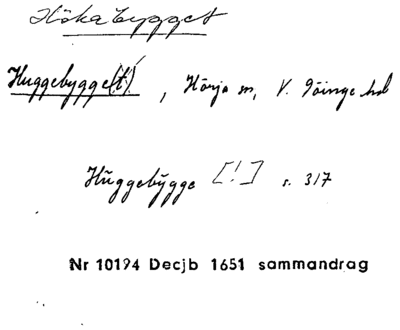 Hökabygget
Huggebygge(t), Hörja sn, V. Göinge hd
Huggebygge [!] s. 317
Nr 10194 Decjb 1651 sammandrag